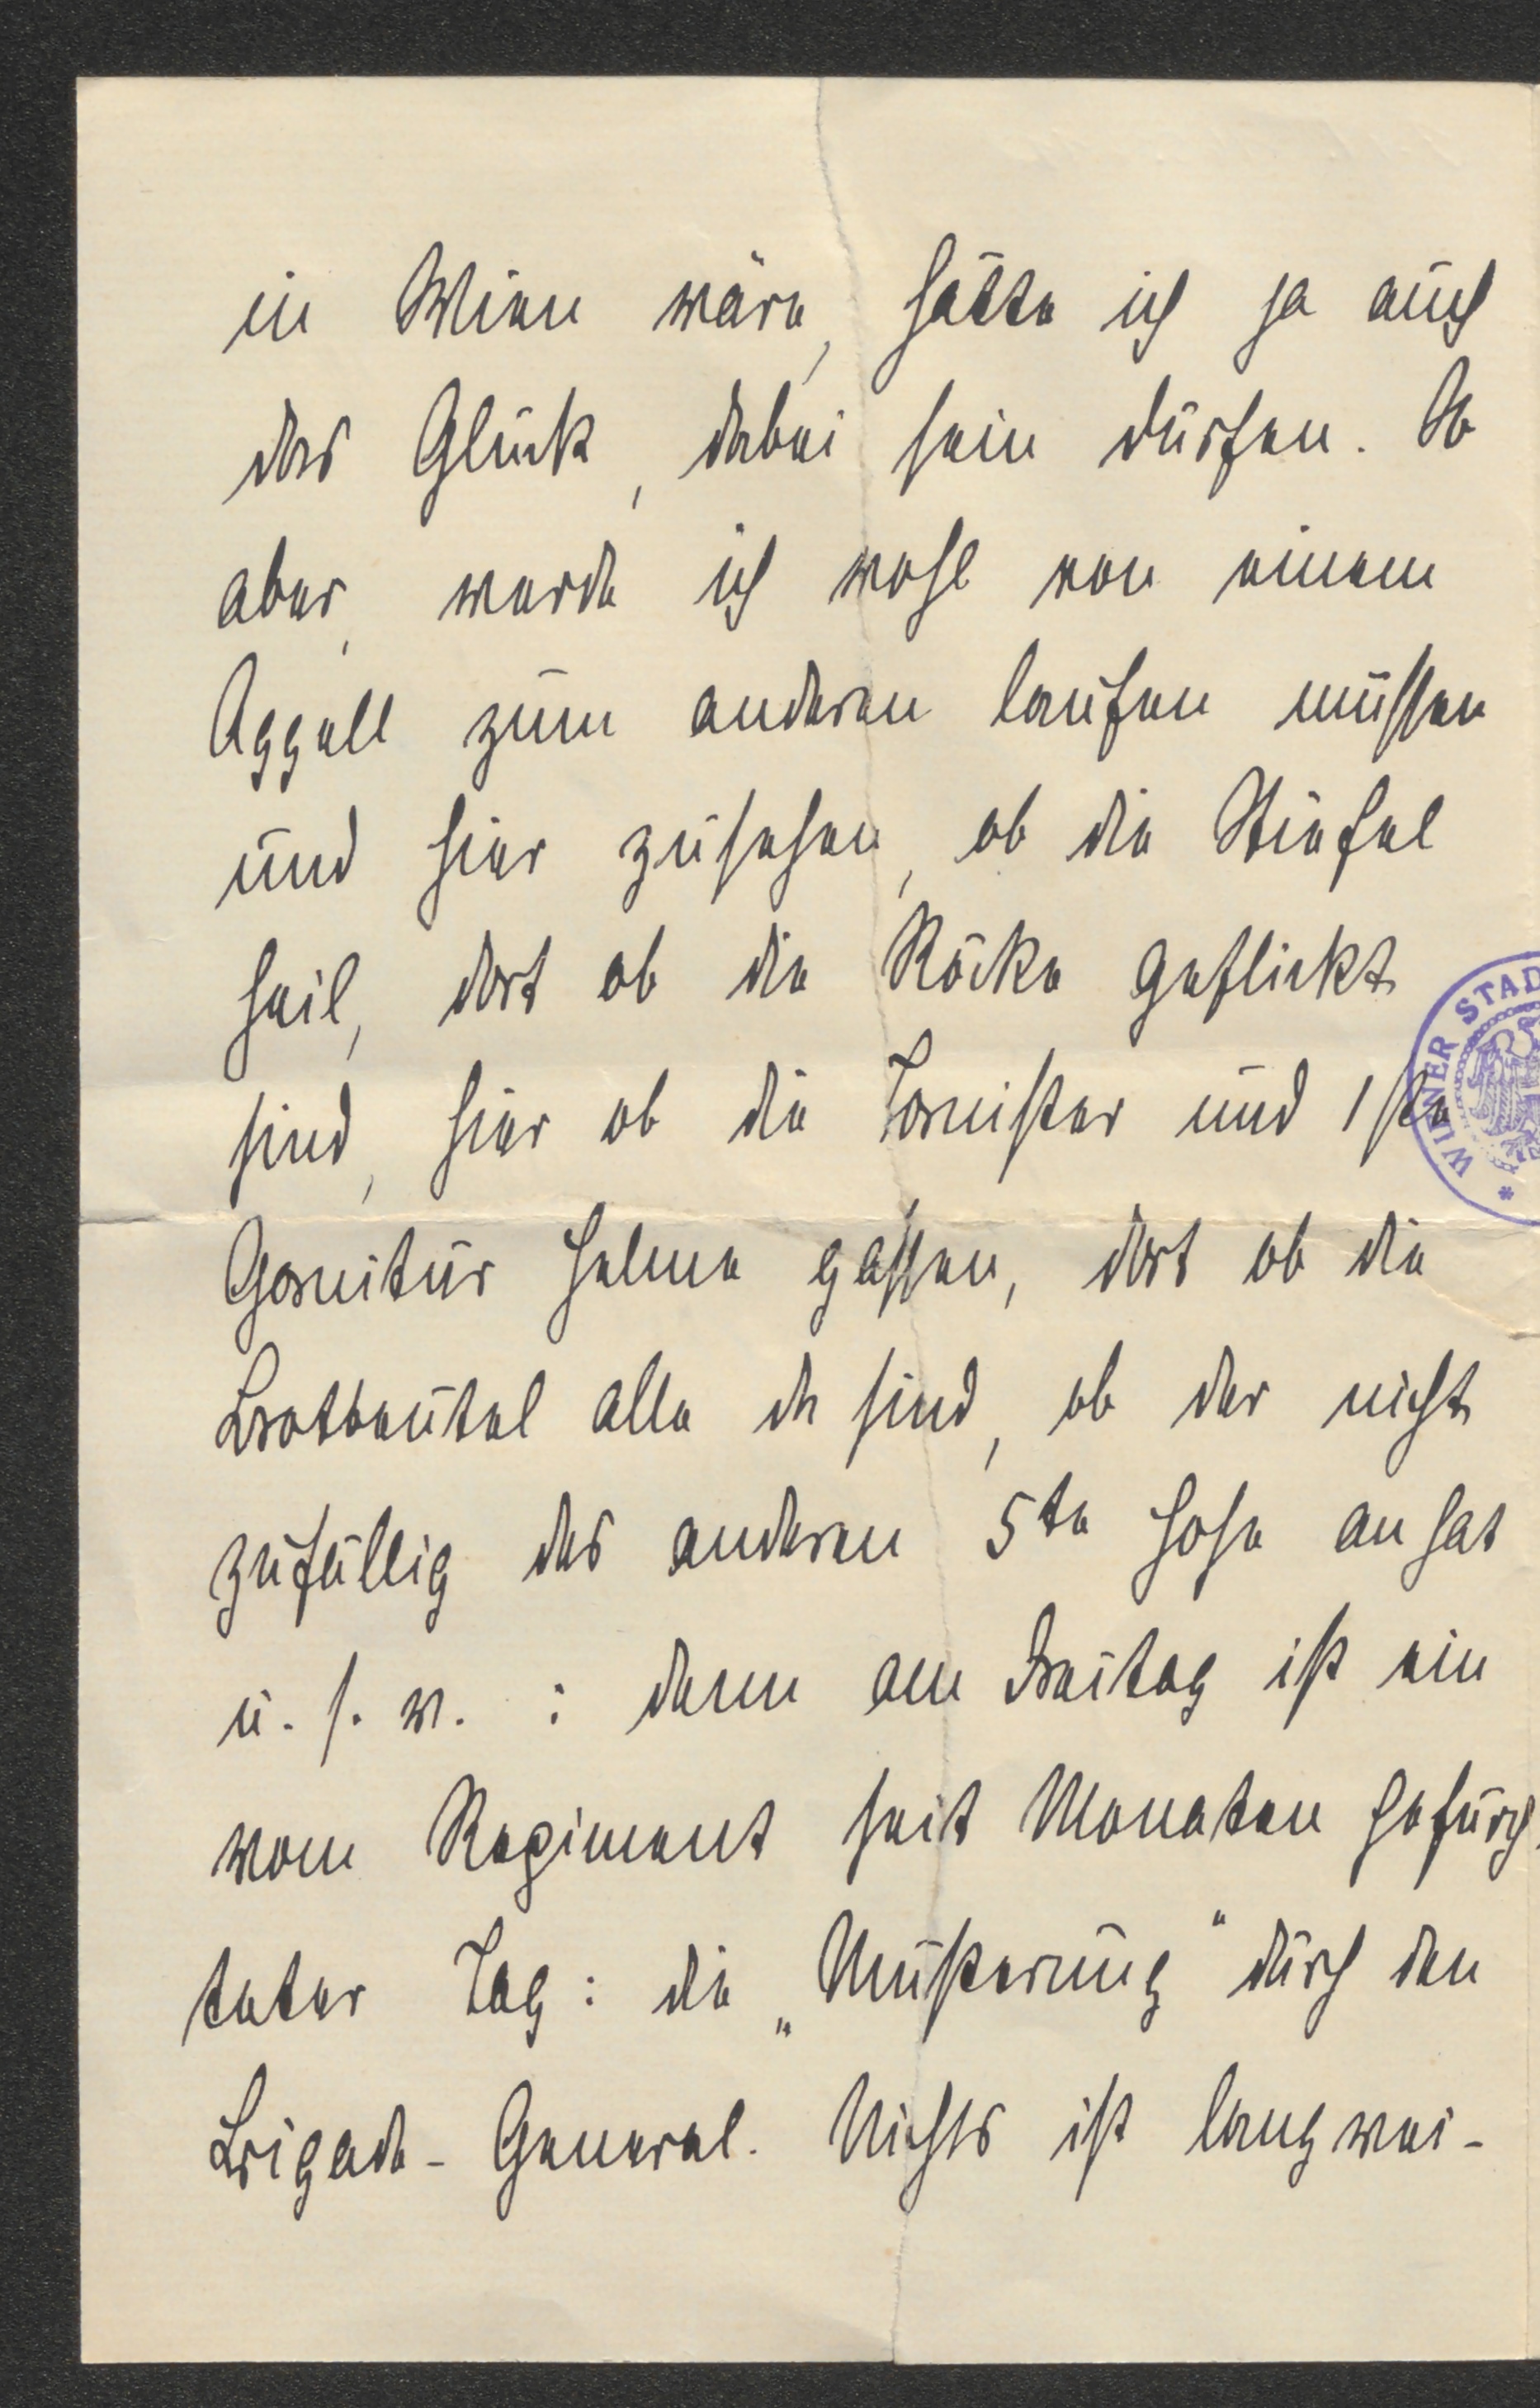 in Wien wäre, hätte ich ja auch
das Glück, dabei sein dürfen. So
aber, werde ich wohl von einem
Appell zum anderen laufen müssen
und hier zusehen, ob die Stiefel
heil, dort ob die Röcke geflickt
sind, hier ob die Tornister und 1ste
Garnitur Helme passen, dort ob die
Brotbeutel alle da sind, ob der nicht
zufällig des anderen 5te Hose an hat
u. s. w. : denn am Freitag ist ein
vom Regiment seit Monaten gefürch
teter Tag: die „Musterung" durch den
Brigade-General. Nichts ist langwei-
WIENER STAD